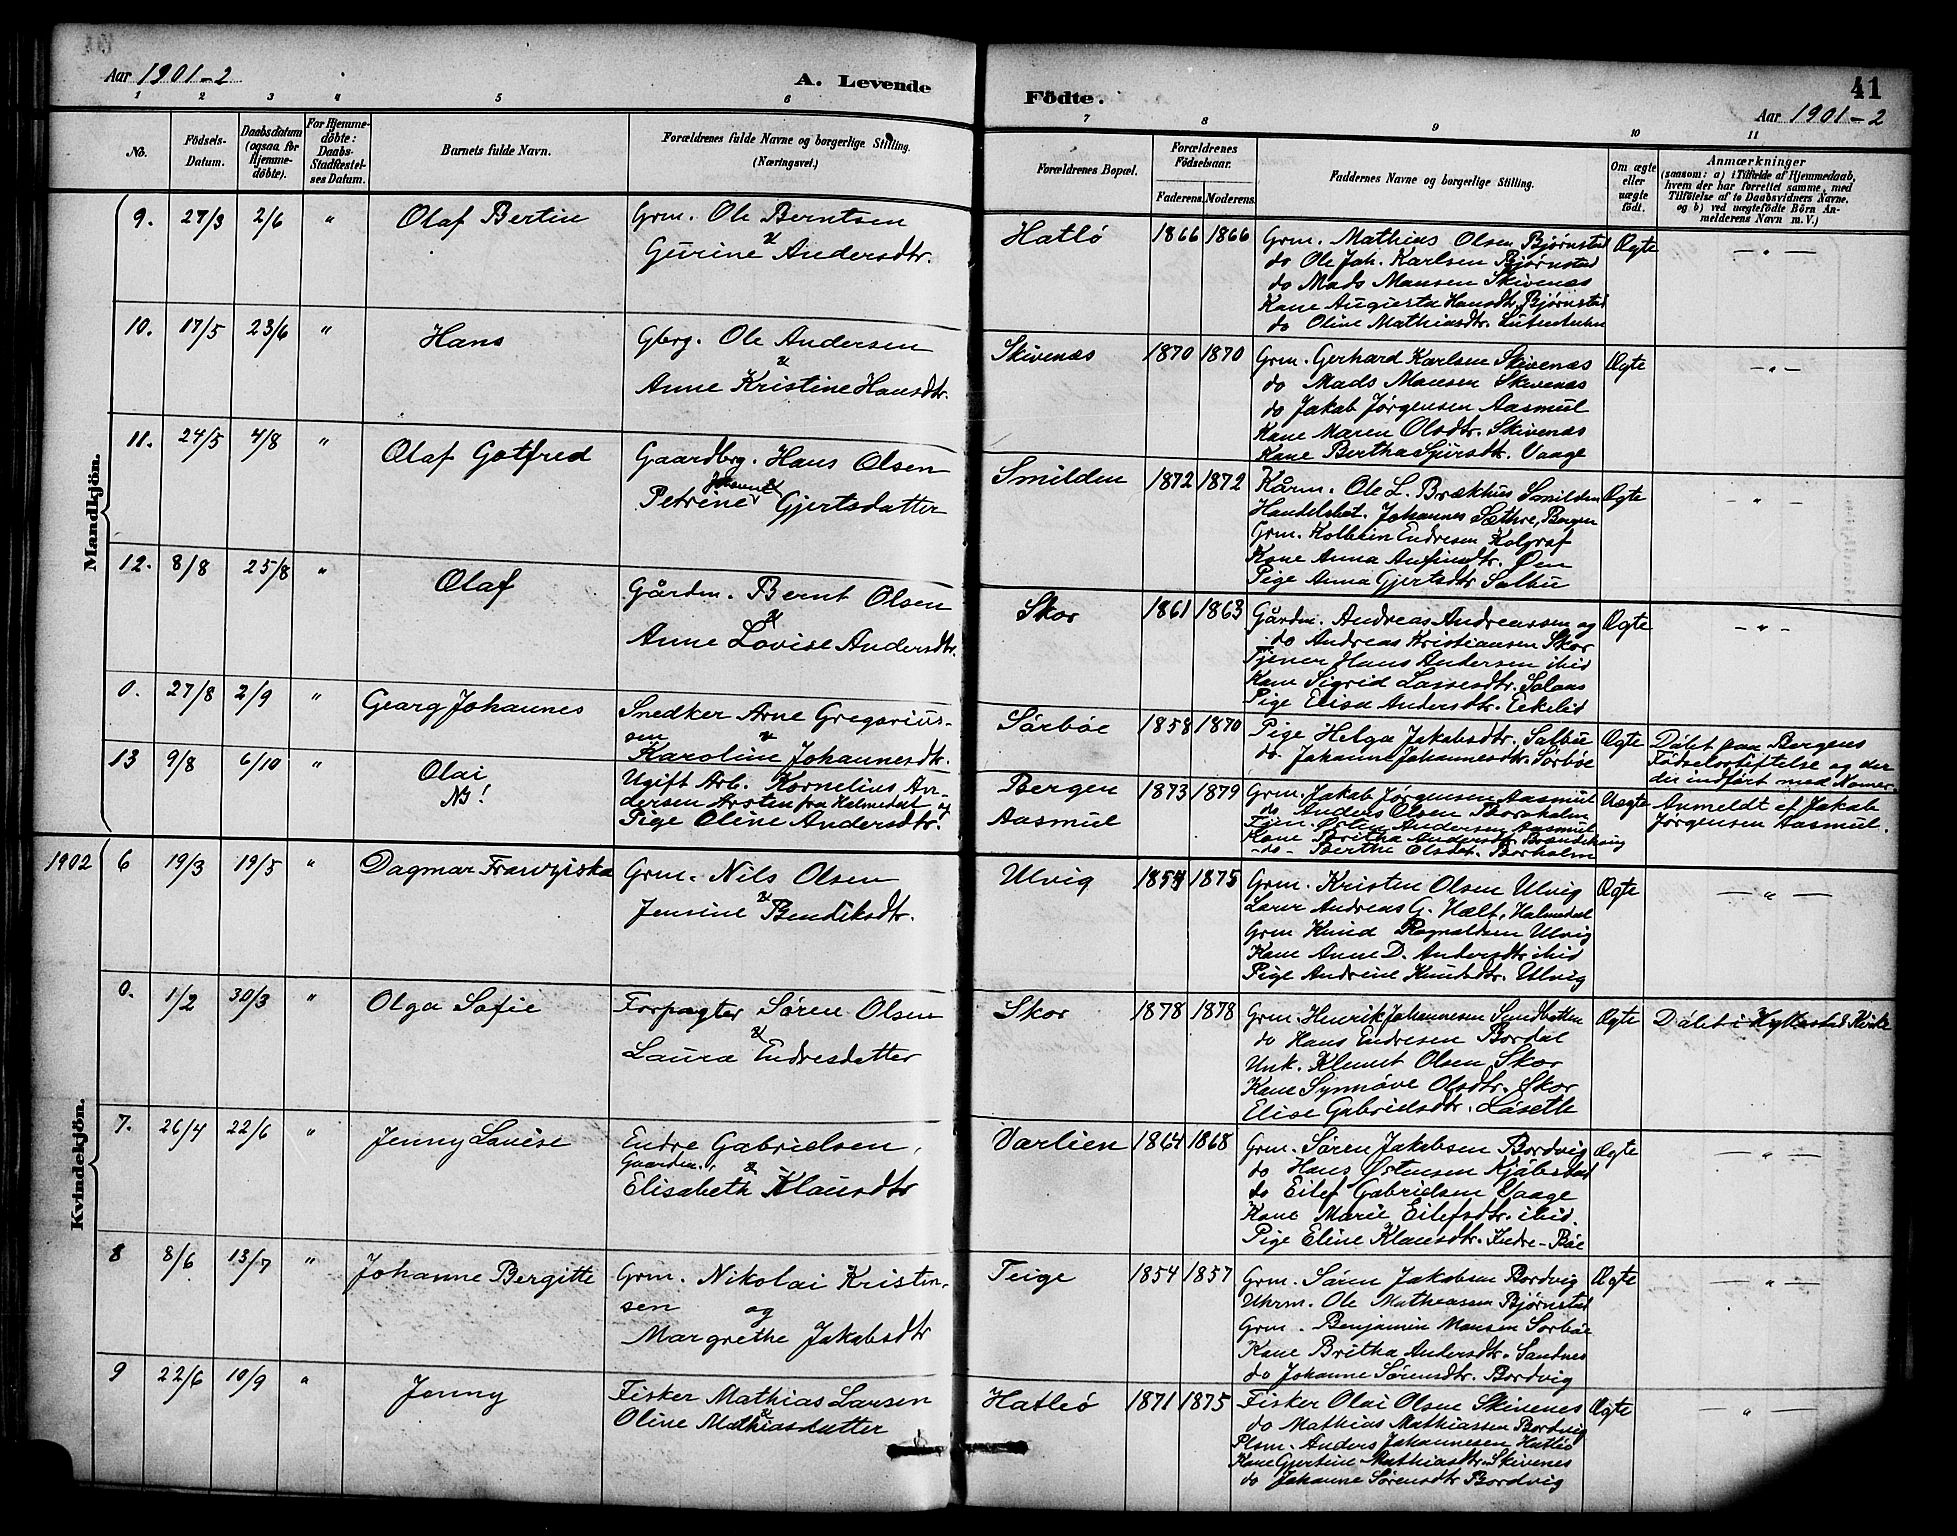 Aar 1901-2
A. Levende
Födte.
41
Aar 1901-2
1 2 3 4 5 6 7 8 9 10 11
No.
Födsels-Datum.
Daabsdatum (ogsaa for Hjemme-döbte).
For Hjemme-döbte: Daabs-Stadfæstel-ses Datum.
Barnets fulde Navn.
Forældrenes fulde Navne og borgerlige Stilling.
(Næringsvei.)
Forældrenes Bopæl.
Forældrenes Födselsaar.
Faderens. Moderens.
Faddernes Navne og borgerlige Stilling.
Om ægte eller uægte født.
Anmærkninger
(saasom: a) i Tilfælde af Hjemmedaab,
hvem der har forrettet samme, med
Tilföielse af to Daabsvidners Navne.
og b) ved uægtefödte Börn An-
melderens Navn m. V.)
Mandkjön.
9. 27/3 2/6 " Olaf Bertin
Grm. Ole Berntsen
&
Gurine Andersdtr.
Hatlö 1866 1866
Grm. Mathias Olsen Bjørnstad
do Ole Joh. Karlsen Bjørnstad
do Mads Monsen Skivenæs
Kone Augusta Hansdtr. Bjørnstad
do Oline Mathiasdtr.
Ægte — " —
10. 17/5 23/6 " Hans
Gbrg. Ole Andersen
&
Anne Kristine Hansdtr.
Skivenæs 1870 1870
Grm. Gerhard Karlsen Skivenæs
do Mads Monsen Skivenæs
do Jakob Jørgensen Aasmul
Kone Maren Olsdtr. Skivenæs
Kone Bertha Sjursdtr. Vaage
Ægte — " —
11. 24/5 4/8 " Olaf Gotfred
Gaardbrg. Hans Olsen
Johanne &
Petrine Gjertsdatter
Smilden 1872 1872
Kårm. Ole L. Brækhus Smilden
Handelsbet. Johannes Sæthre, Bergen
Grm. Kolbein Endresen Kolgraf
Kone Anna Anfinsdtr. Øen
Pige Anna Gjertsdtr Salbu
Ægte — " —
12. 8/8 25/8 " Olaf
Gårdm. Bernt Olsen
&
Anne Lovise Andersdtr.
Skor 1861 1863
Gårdm. Andreas Andreassen og
do Andreas Kristiansen Skor
Tjener Hans Andersen ibid
Kone Sigrid Lassesdtr. Salaas
Pige Elisa Andersdtr. Eekelid
Ægte — " —
0. 27/8 2/9 " Georg Johannes
Snedker Arne Gregorius-
sen &
Karoline Johannesdtr.
Sørbøe 1858 1870
Pige Helga Jakobsdtr. Salbu
do. Johanne Johannesdtr. Sørbøe
Ægte
Døbt paa Bergens
Fødselsstiftelse og der
der indført med Nomer.
13 9/8 6/10 " Olai
NB!
Ugift Arb. Kornelius An-
dersen Arsten fra Holmedal og
Pige Oline Andersdtr.
Bergen
Aasmul
1873 1879
Grm. Jakob Jørgensen Aasmul
do Anders Olsen Borholm
Tjen. Andersen Aasmul
Kone Britha Andersdtr.
-do- Berthe Olsdtr. Borholm
Uægte
Anmeldt af Jakob
Jørgensen Aasmul.
1902
Kvindekjön.
6 19/3 19/5 " Dagmar Franziska
Grm. Nils Olsen
&
Jensine Bendiksdtr.
Ulvig 1854 1875
Grm. Kristen Olsen Ulvig
Lærer Andreas G. Hælt, Holmedal
Grm Knud Ragnaldsen Ulvig
Kone Anne D. Andersdtr ibid
Pige Andrine Knutsdtr. Ulvig
Ægte — " —
0. 1/2 30/3 " Olga Sofie
Forpagter Søren Olsen
&
Laura Endresdatter
Skor 1878 1878
Grm. Henrik Johannesen Sundbotten
do Hans Endresen Bordal
Unk. Klemet Olsen Skor
Kone Synnøve Olsdtr. Skor
Elise Gabrielsdtr. Låseth
Ægte
Døbt i Hyllestad Kirke
7. 26/4 22/6 " Jenny Lovise
Endre Gabrielsen,
Gaardm. &
Elisabeth Klausdtr
Varlien 1864 1868
Grm. Søren Jakobsen Bordvig
do Hans Østensen Kjølsdal
do Eilef Gabrielsen Vaage
Kone Marie Eilefsdtr. ibid.
Pige Eline Klausdtr. Indre-Bøe
Ægte — " —
8 8/6 13/7 " Johanne Bergitte
Grm. Nikolai Kristen-
sen og
Margrethe Jakobsdtr
Teige 1854 1857
Grm. Søren Jakobsen Bordvig
Uhrm. Ole Mathiassen Bjørnstad
Grm. Benjamin Monsen Sørbøe
Kone Britha Andersdtr. Sandnes
do Johanne Sørensdtr. Bordvig
Ægte — " —
9 22/6 10/9 " Jenny
Fisker Mathias Larsen
&
Oline Mathiasdatter
Hatleö 1871 1875
Fisker Olai Olsen Skivenes
do Mathias Mathiassen Bordvig
Plsm. Anders Johannesen Hatlö
Kone Gjertine Mathiasdtr. Skivenes
do Johanne Sørensdtr Bordvig
Ægte — " —